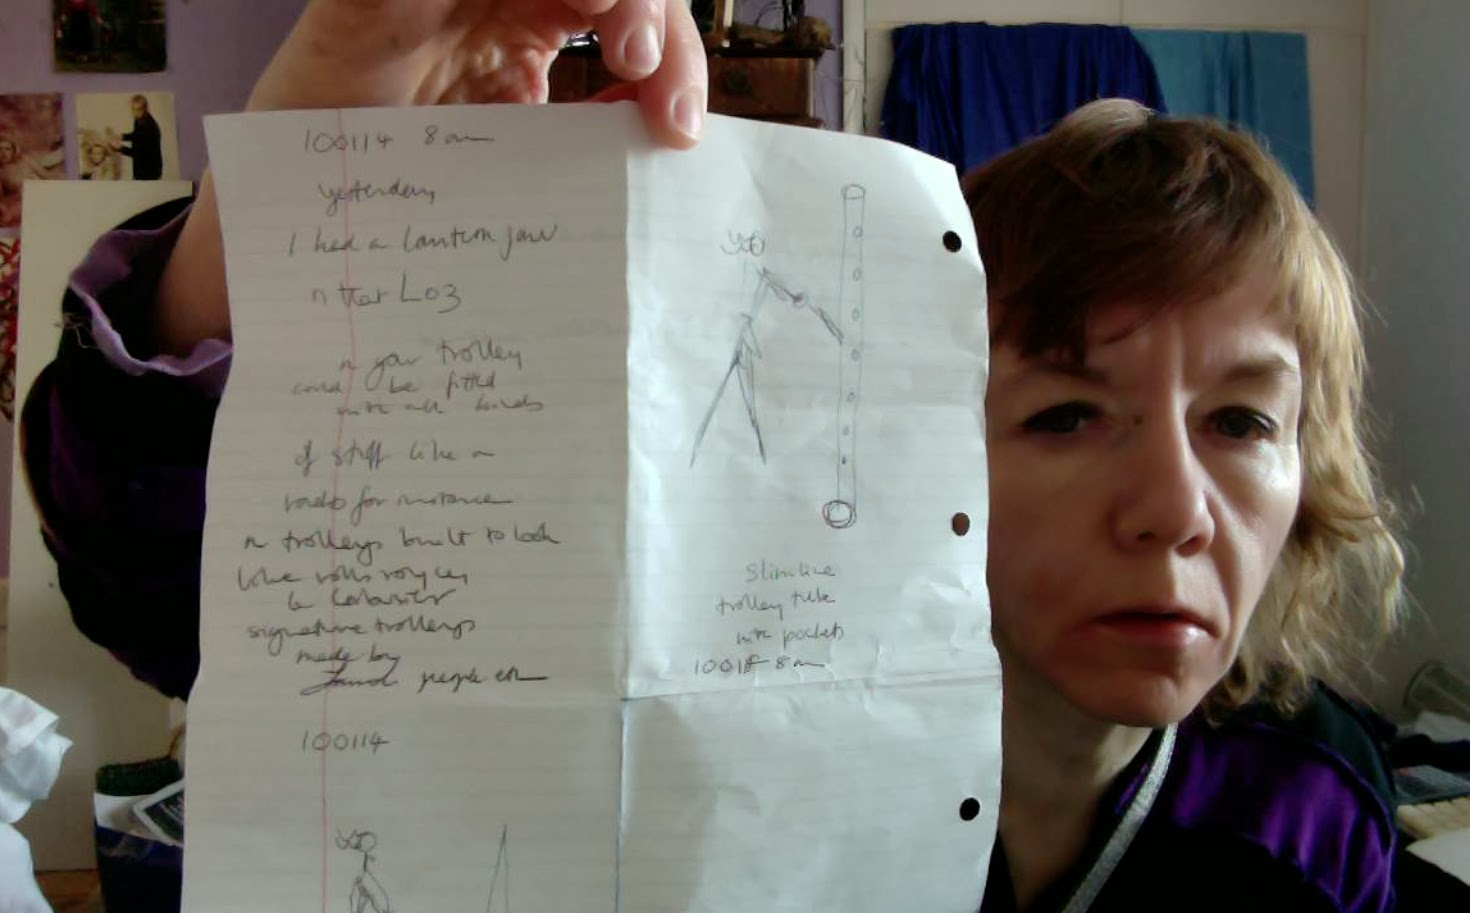 100114 8am
yesterday
I had a lantern jaw
n that L03
n your trolley
could be fitted
with all kinds
of stuff like a
radio for instance
n trolleys built to look
like rolls royces
signature trolleys
made by
people eh
100114
Slimline
trolley tube
with pockets
10011 8am